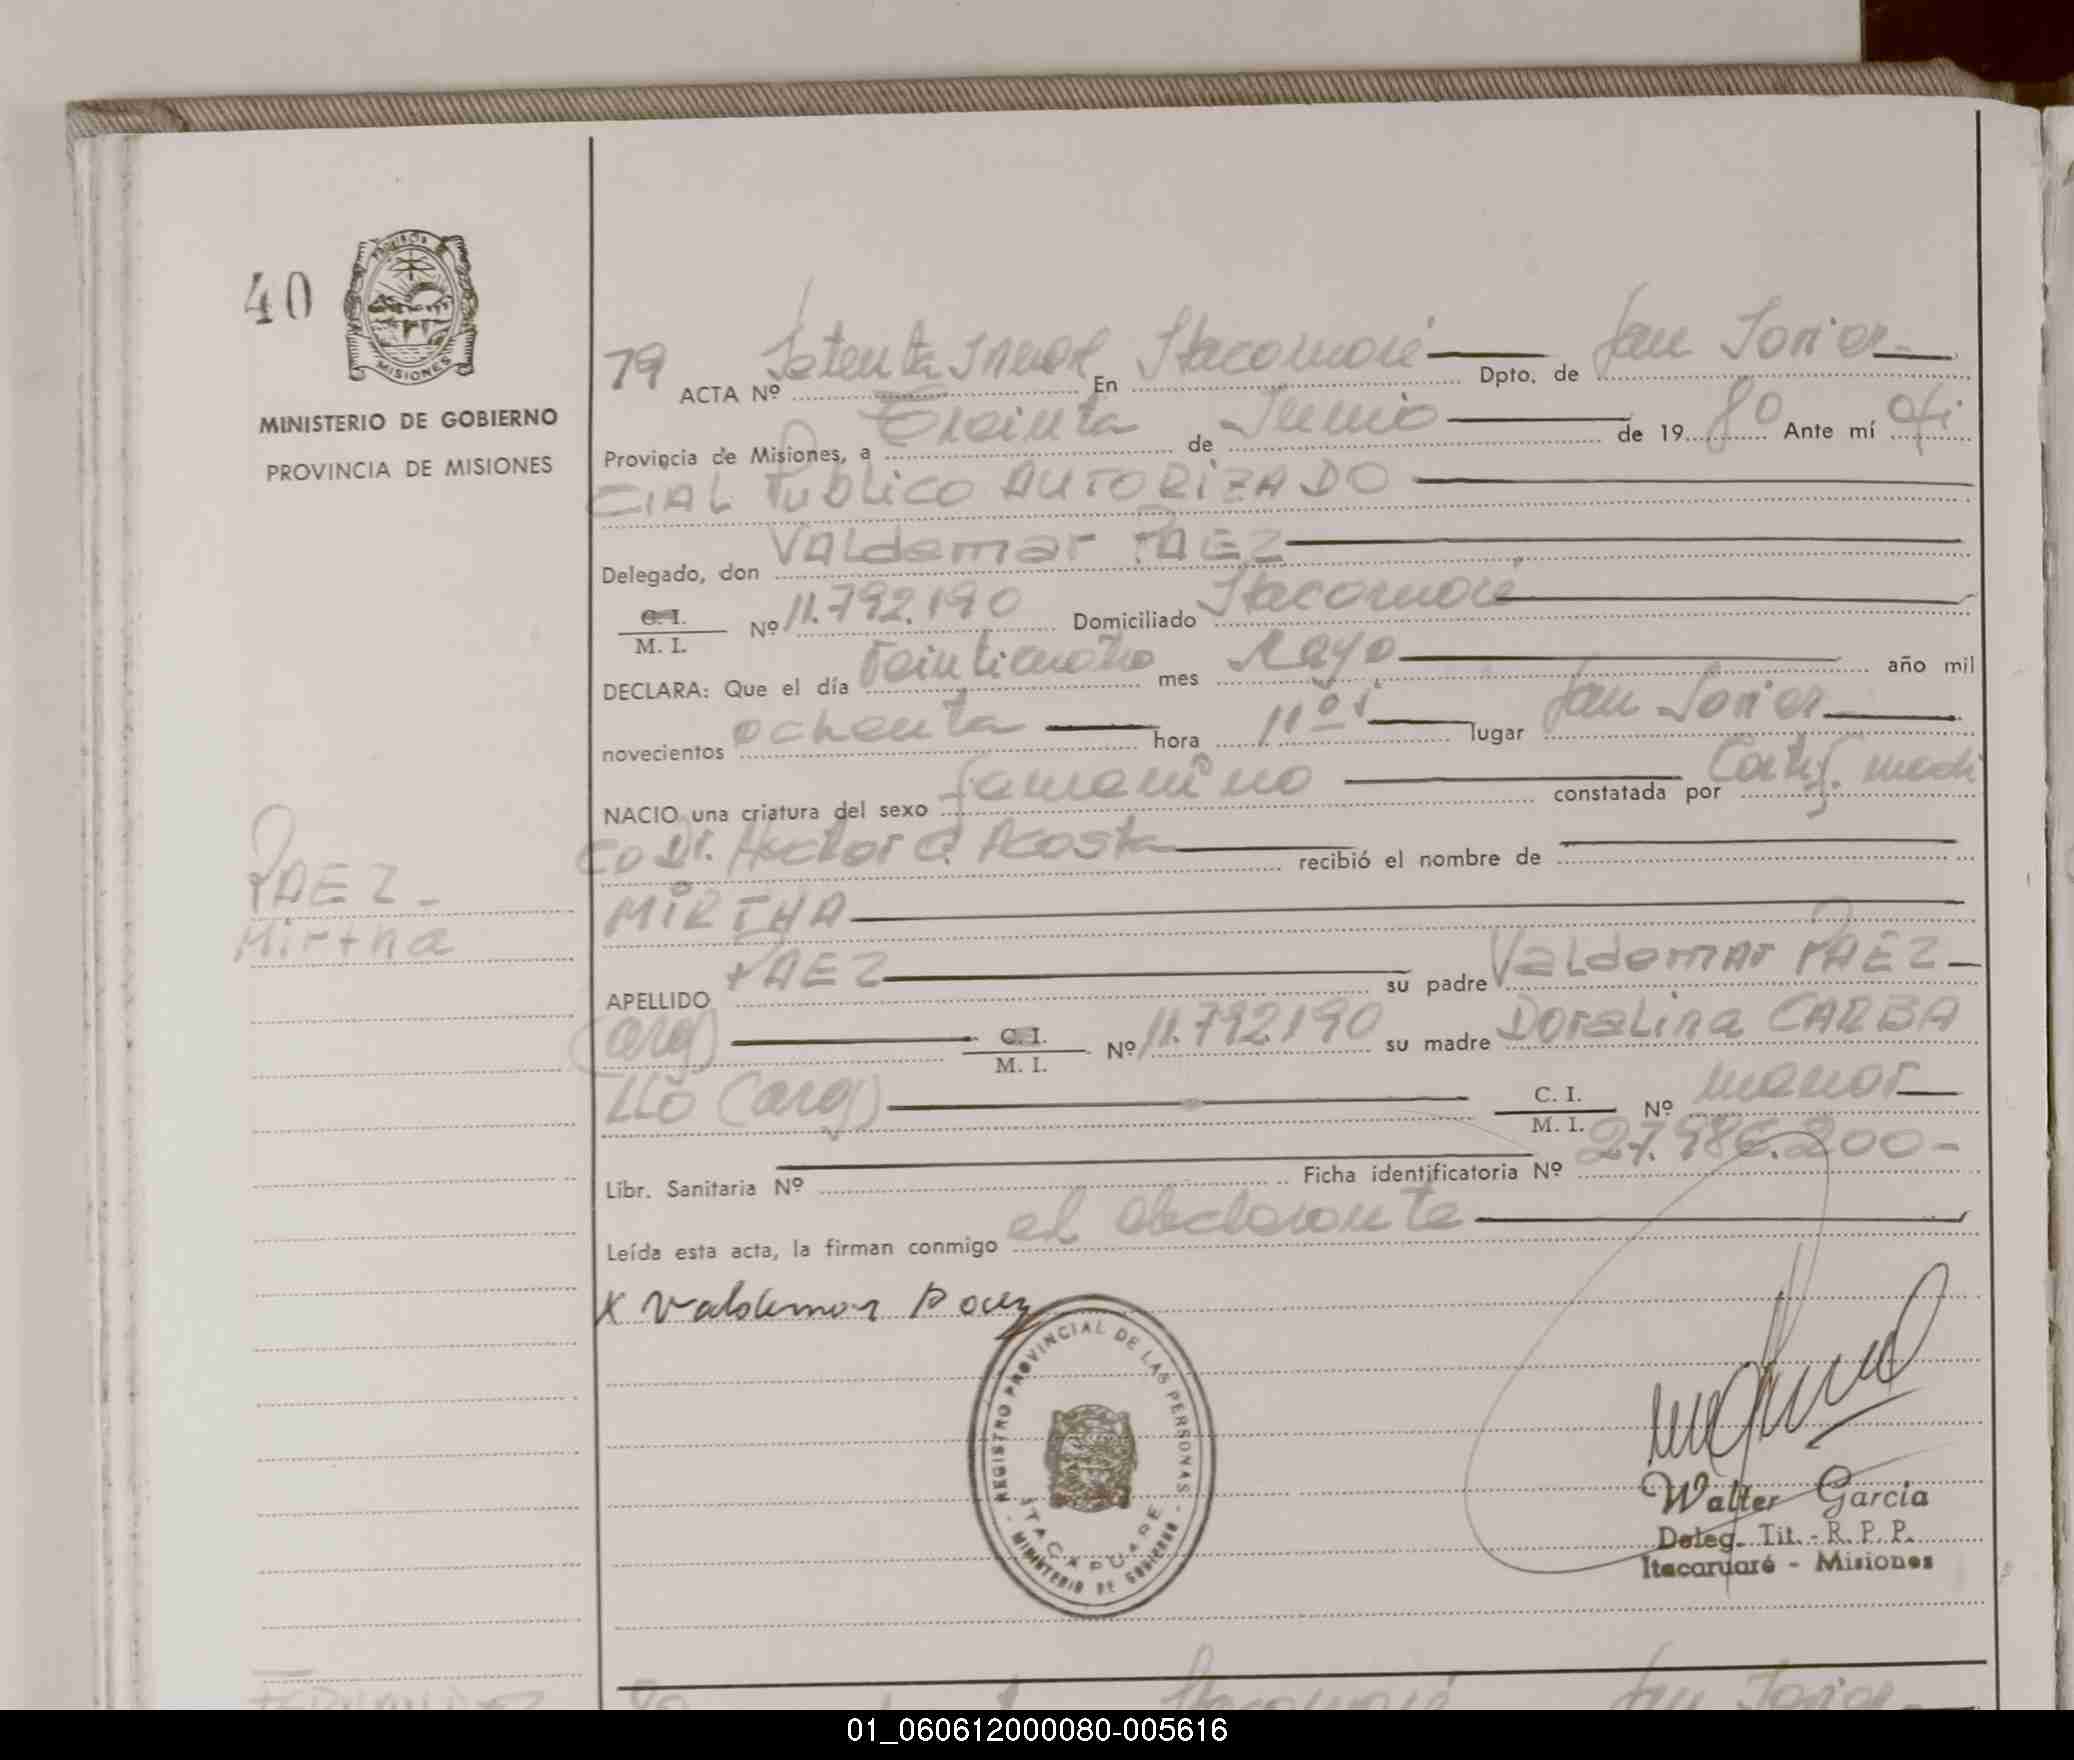 40
PROVINCIA DE
MISIONES
MINISTERIO DE GOBIERNO
PROVINCIA DE MISIONES
PAEZ -
Mirtha
79 ACTA Nº Setenta y nueve En Itacaruaré Dpto. de San Javier
Provincia de Misiones, a Treinta de Junio de 19 80 Ante mí Ofi
CIAL Publico AUTORIZADO
Delegado, don Valdemar PAEZ
C. I. / M. I. Nº 11.792.190 Domiciliado Itacaruaré
DECLARA: Que el día veinticuatro mes Mayo año mil
novecientos ochenta hora 11 lugar San Javier
NACIO una criatura del sexo femenino constatada por Certif. medi
co Dr. Hector A. Acosta recibió el nombre de
MIRTHA
APELLIDO PAEZ su padre Valdemar PAEZ
(arg) C. I. / M. I. Nº 11.792.190 su madre Doralina CARBA
LLO (arg) C. I. / M. I. Nº menor
Libr. Sanitaria Nº Ficha identificatoria Nº 27.986.200-
Leída esta acta, la firman conmigo el declarante
X Valdemar Paez
REGISTRO PROVINCIAL DE LAS PERSONAS
ITACARUARE
- MINISTERIO DE GOBIERNO -
Walter Garcia
Deleg. Tit. - R. P. P.
Itacaruaré - Misiones
Itacaruaré San Javier
01_060612000080-005616